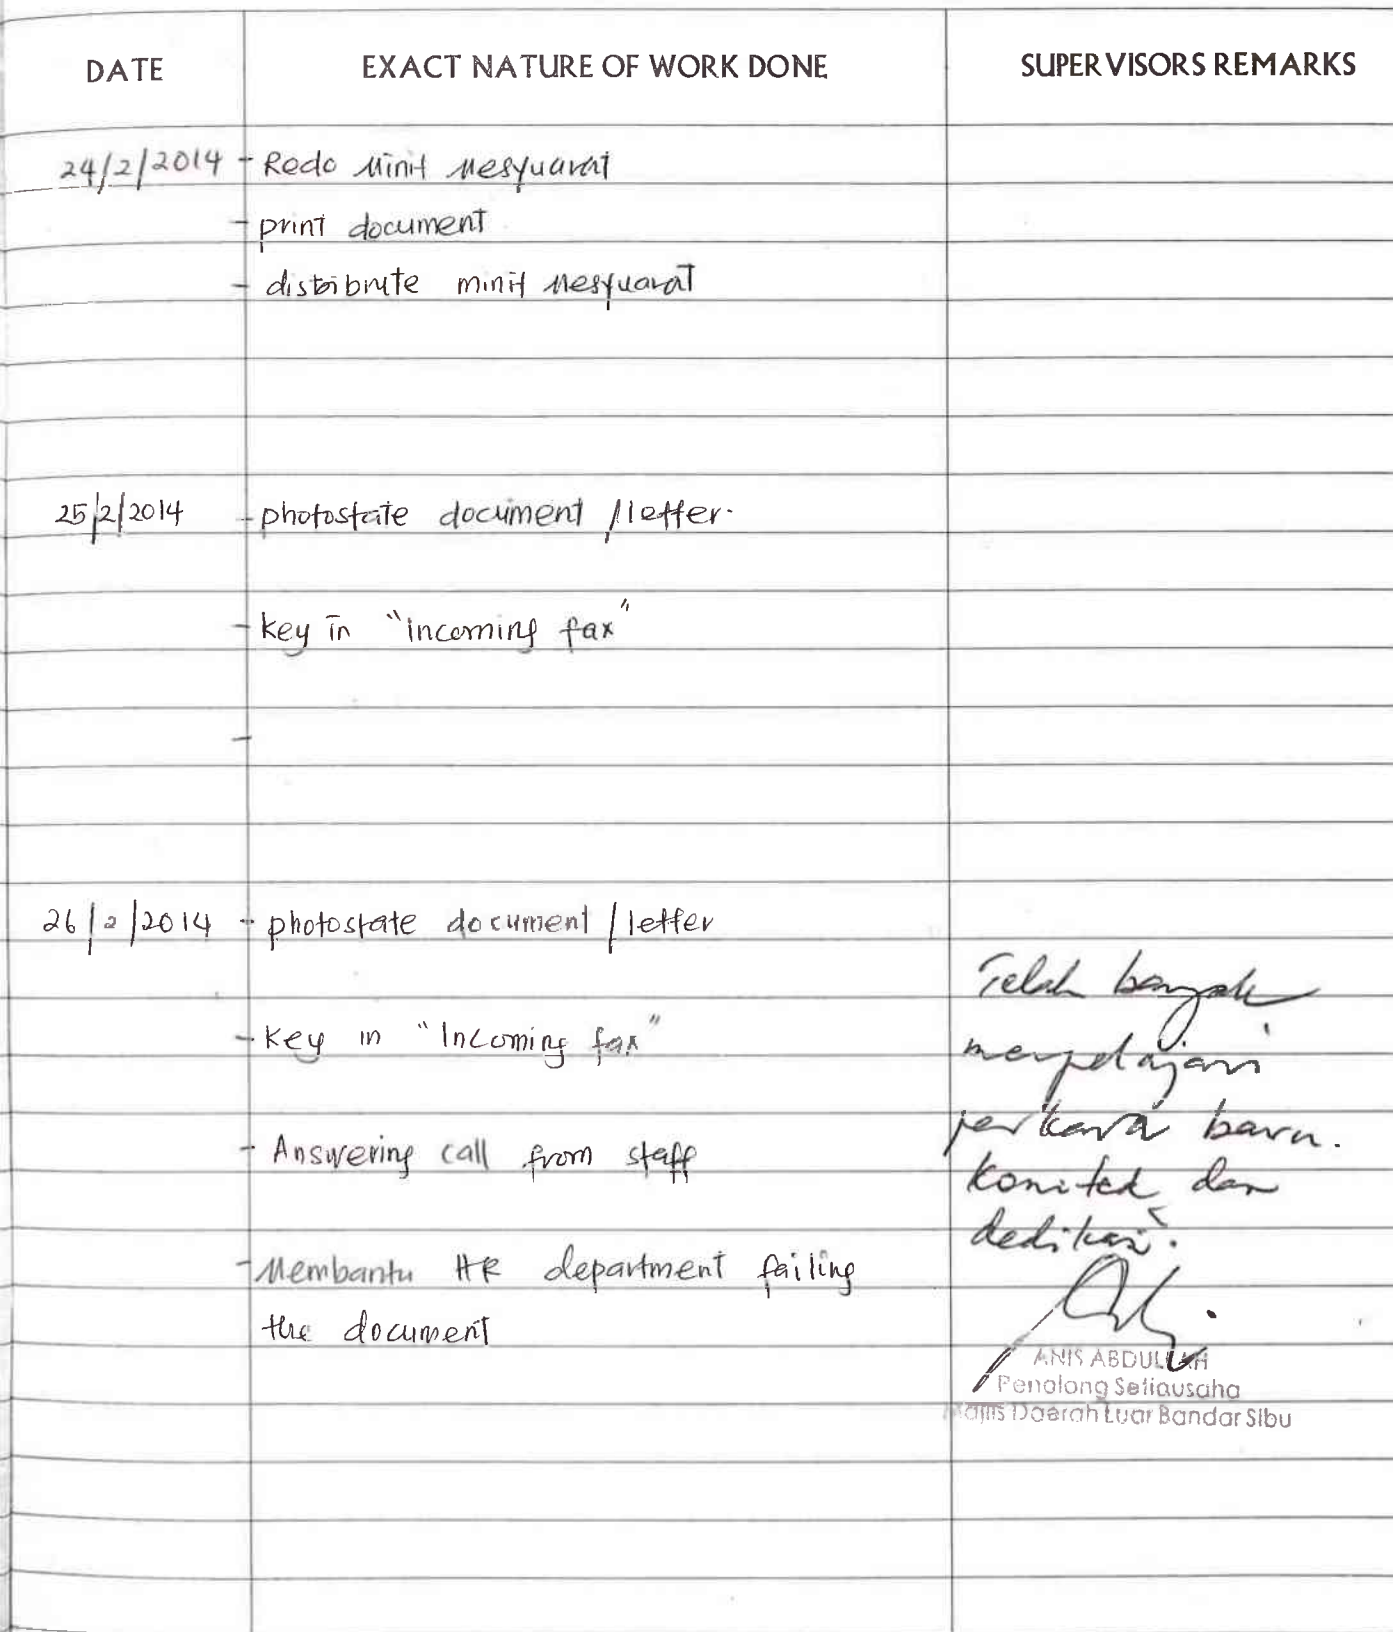 DATE EXACT NATURE OF WORK DONE SUPERVISORS REMARKS
24/2/2014 - Redo Minit Mesyuarat
- print document
- distribute minit Mesyuarat
25/2/2014 - photostate document / letter.
- key in "incoming fax"
-
26/2/2014 - photostate document / letter
- key in "Incoming fax"
- Answering call from staff
- Membantu HR department failing
the document
Telah banyak
mempelajari
perkara baru.
Komited dan
dedikasi.
ANIS ABDULLAH
Penolong Setiausaha
Majlis Daerah Luar Bandar Sibu